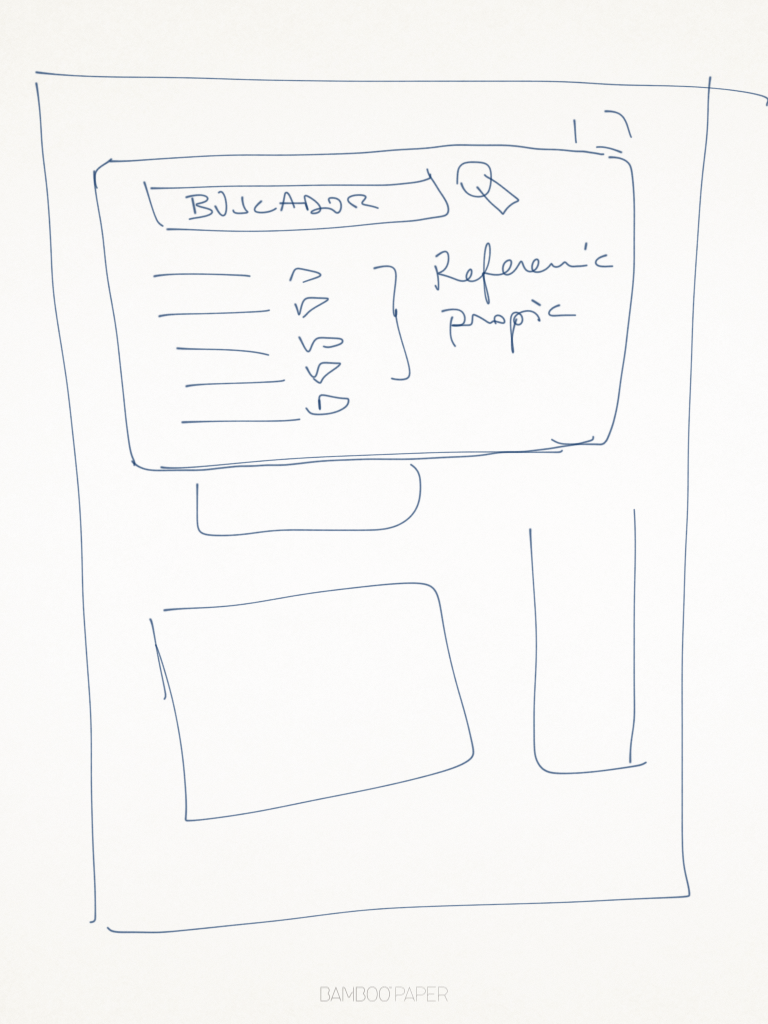 BUSCADOR
Referenic
propic
BAMBOO PAPER